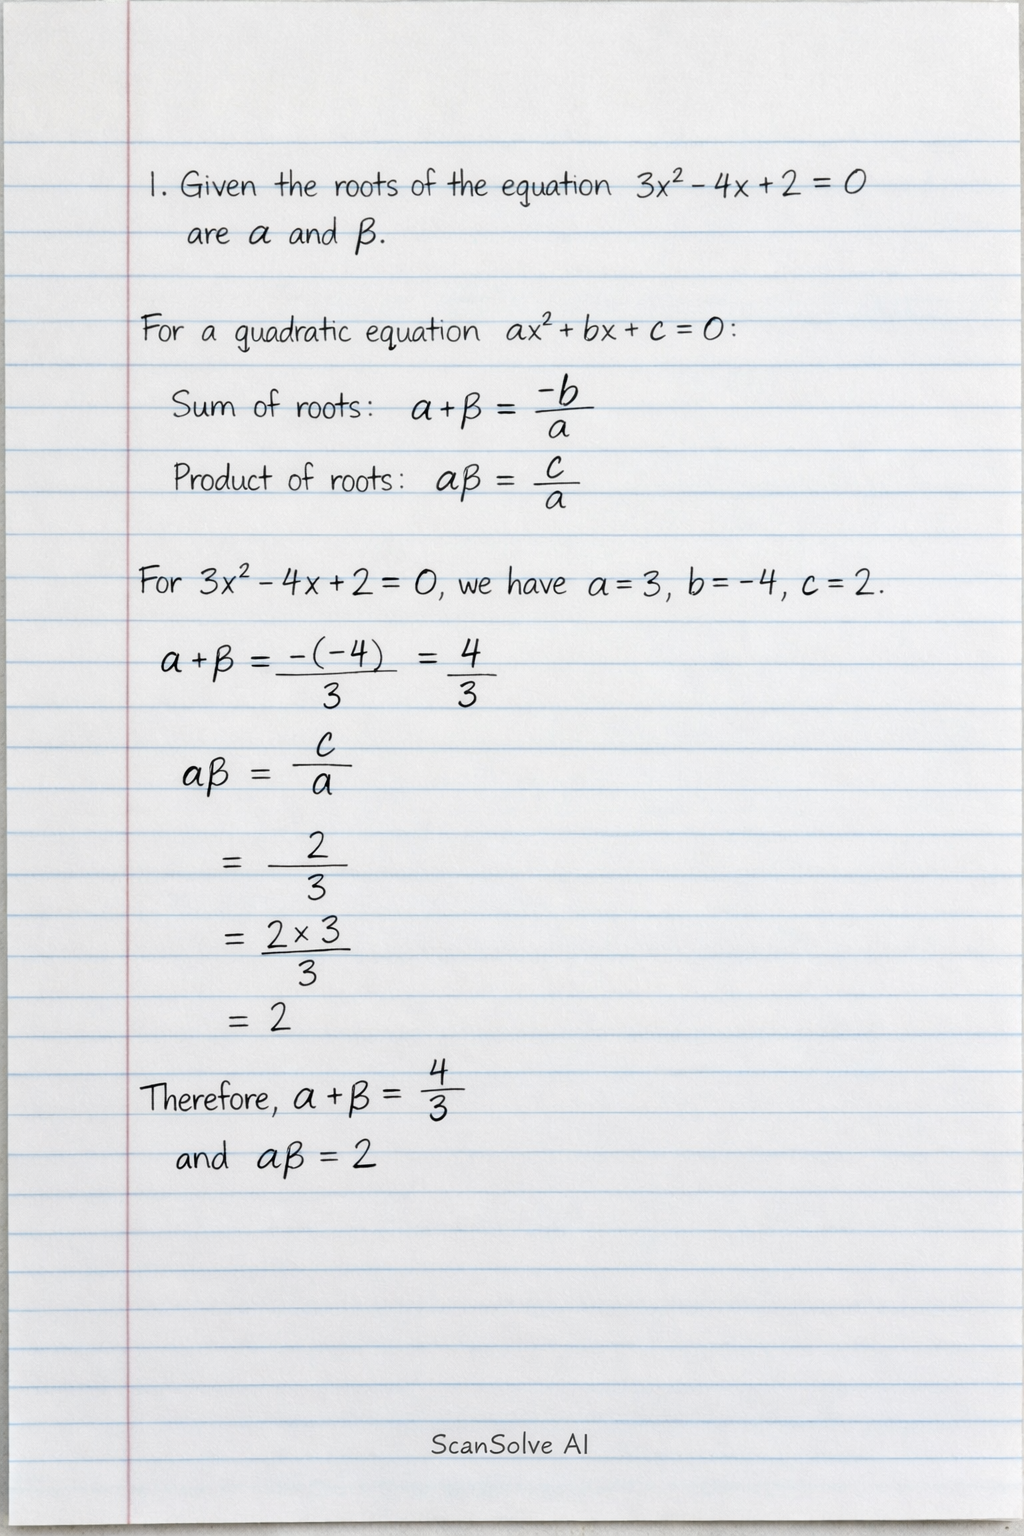 1. Given the roots of the equation 3x² - 4x + 2 = 0
are α and β.
For a quadratic equation ax² + bx + c = 0:
Sum of roots: α + β = -b/a
Product of roots: αβ = c/a
For 3x² - 4x + 2 = 0, we have a = 3, b = -4, c = 2.
α + β = -(-4)/3 = 4/3
αβ = c/a
= 2/3
= 2 × 3/3
= 2
Therefore, α + β = 4/3
and αβ = 2
ScanSolve AI